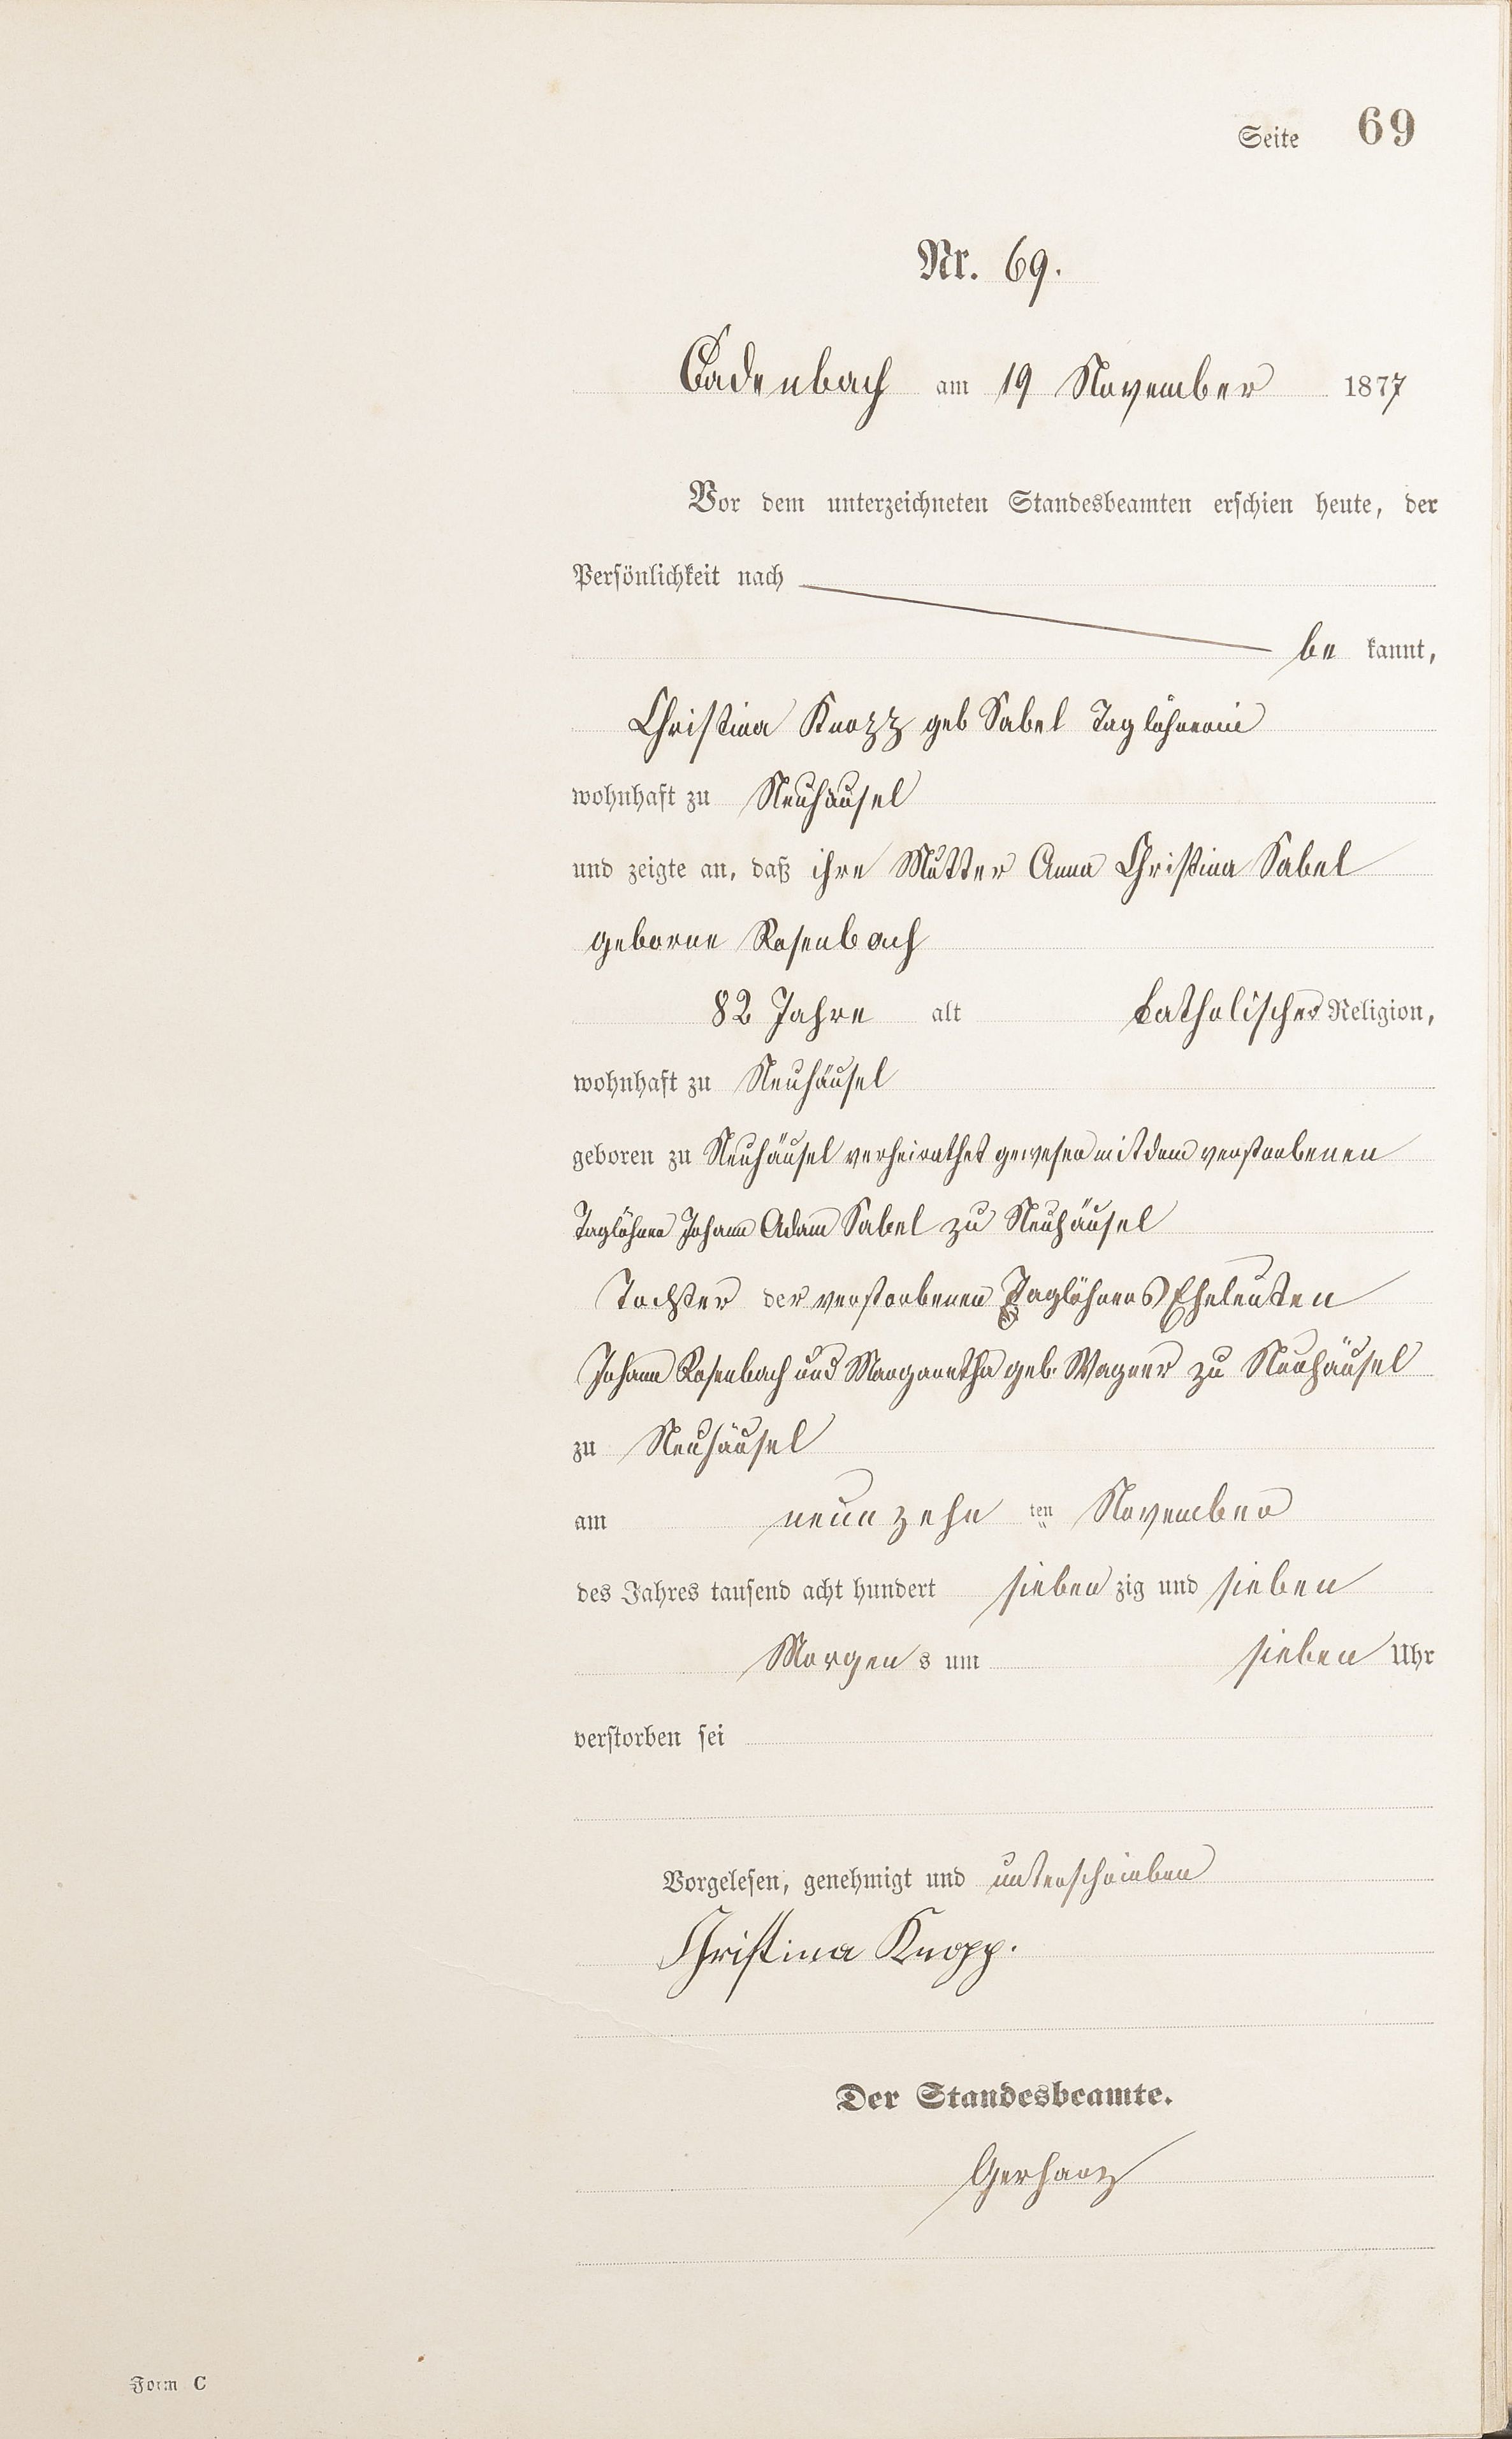 Seite 69
Nr. 69.
Cadenbach am 19 November 1877
Vor dem unterzeichneten Standesbeamten erschien heute, der
Persönlichkeit nach
be kannt,
Christina Knopp geb Sabel Taglöhnerin
wohnhaft zu Neuhäusel
und zeigte an, daß ihre Mutter Anna Christina Sabel
geborne Rosenbach
82 Jahre alt katholischer Religion,
wohnhaft zu Neuhäusel
geboren zu Neuhäusel verheirathet gewesen mit dem verstorbenen
Taglöhner Johann Adam Sabel zu Neuhäusel
Tochter der verstorbenen Taglöhners Eheleuten
Johann Rosenbach und Margaretha geb. Wagner zu Neuhäusel
zu Neuhäusel
am neunzehn ten November
des Jahres tausend acht hundert sieben zig und sieben
Morgen s um sieben Uhr
verstorben sei
Vorgelesen, genehmigt und unterschrieben
Christina Knopp.
Der Standesbeamte.
Gerharz
Form C